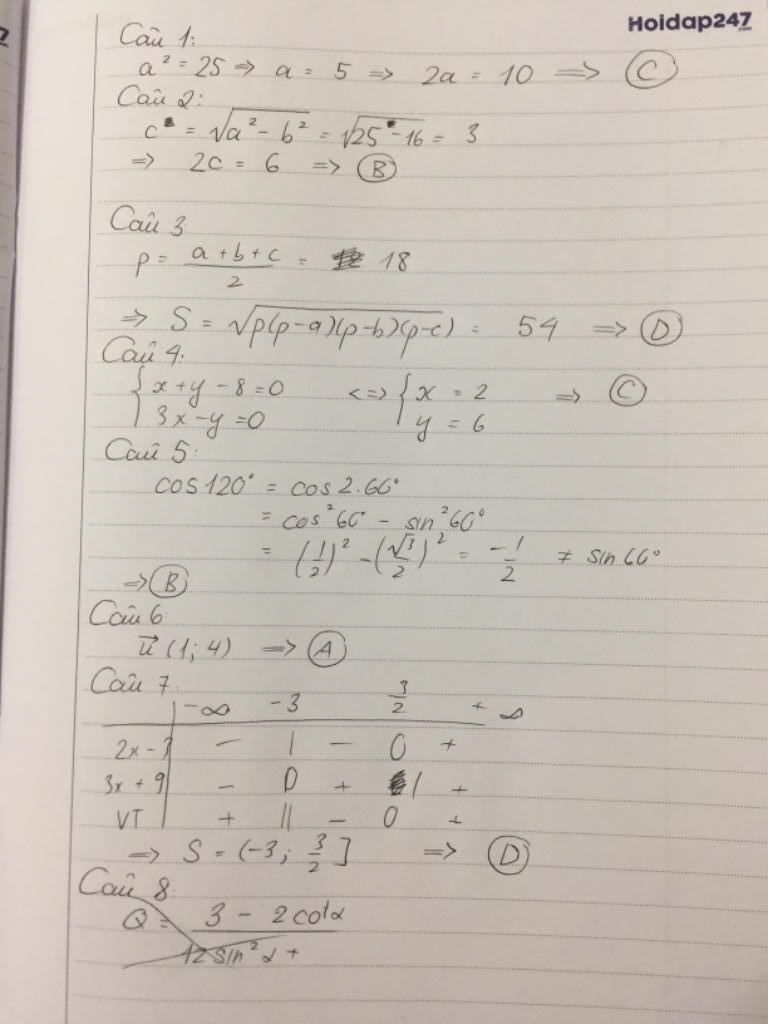 Hoidap247
.com
Câu 1:
a² = 25 => a = 5 => 2a = 10 => C
Câu 2:
c = √(a² - b²) = √(25 - 16) = 3
=> 2c = 6 => B
Câu 3
p = (a+b+c)/2 = 18
=> S = √(p(p-a)(p-b)(p-c)) = 54 => D
Câu 4.
{x + y - 8 = 0 <=> {x = 2 => C
{3x - y = 0 {y = 6
Câu 5:
cos 120° = cos 2.60°
= cos² 60° - sin² 60°
= (1/2)² - (√3/2)² = -1/2 ≠ sin 60°
=> B
Câu 6
u⃗ (1; 4) => A
Câu 7
-∞ -3 3/2 +∞
2x - 3 - | - 0 +
3x + 9 - 0 + | +
VT + || - 0 +
=> S = (-3; 3/2] => D
Câu 8.
Q = 3 - 2cotα
12 sin² α +